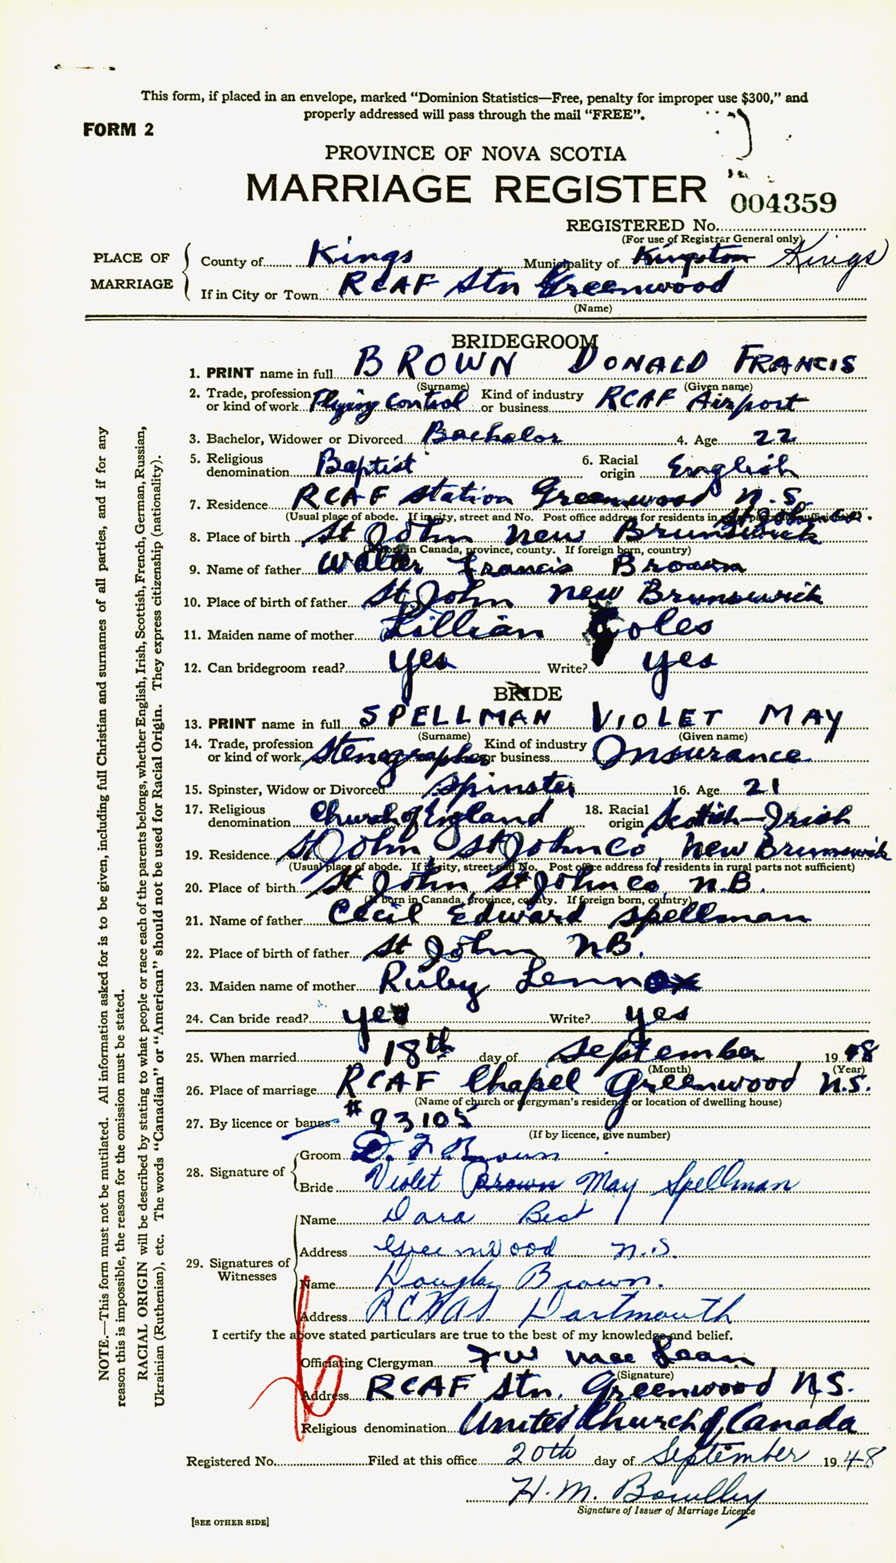 This form, if placed in an envelope, marked “Dominion Statistics—Free, penalty for improper use $300,” and
properly addressed will pass through the mail “FREE”.
FORM 2
PROVINCE OF NOVA SCOTIA
MARRIAGE REGISTER
004359
REGISTERED No.
(For use of Registrar General only)
PLACE OF MARRIAGE
County of Kings Municipality of Kingston Kings
If in City or Town RCAF Stn Greenwood
(Name)
BRIDEGROOM
1. PRINT name in full BROWN DONALD FRANCIS
(Surname) (Given name)
2. Trade, profession or kind of work Flying Control Kind of industry or business RCAF Airport
3. Bachelor, Widower or Divorced Bachelor 4. Age 22
5. Religious denomination Baptist 6. Racial origin English
7. Residence RCAF Station Greenwood N.S.
(Usual place of abode. If in city, street and No. Post office address for residents in rural parts not sufficient)
St John Co.
8. Place of birth St John New Brunswick
(If born in Canada, province, county. If foreign born, country)
9. Name of father Walter Francis Brown
10. Place of birth of father St John New Brunswick
11. Maiden name of mother Lillian Coles
12. Can bridegroom read? yes Write? yes
BRIDE
13. PRINT name in full SPELLMAN VIOLET MAY
(Surname) (Given name)
14. Trade, profession or kind of work Stenographer Kind of industry or business Insurance
15. Spinster, Widow or Divorced Spinster 16. Age 21
17. Religious denomination Church of England 18. Racial origin Scottish-Irish
19. Residence St John St John Co New Brunswick
(Usual place of abode. If in city, street and No. Post office address for residents in rural parts not sufficient)
20. Place of birth St John, St John Co, N.B.
(If born in Canada, province, county. If foreign born, country)
21. Name of father Cecil Edward Spellman
22. Place of birth of father St John N.B.
23. Maiden name of mother Ruby Lennox
24. Can bride read? yes Write? yes
25. When married 18th day of September 1948
(Month) (Year)
26. Place of marriage RCAF Chapel Greenwood N.S.
(Name of church or clergyman's residence or location of dwelling house)
27. By licence or banns # 93105
(If by licence, give number)
28. Signature of
Groom D. F Brown
Bride Violet Brown May Spellman
29. Signatures of Witnesses
Name Dara Best
Address Greenwood N.S.
Name Douglas Brown.
Address RCNAS Dartmouth
I certify the above stated particulars are true to the best of my knowledge and belief.
Officiating Clergyman FW MacLean
(Signature)
Address RCAF Stn. Greenwood N.S.
Religious denomination United Church of Canada
Registered No. Filed at this office 20th day of September 1948
H. M.
Signature of Issuer of Marriage Licence
[SEE OTHER SIDE]
NOTE.—This form must not be mutilated. All information asked for is to be given, including full Christian and surnames of all parties, and if for any
reason this is impossible, the reason for the omission must be stated.
RACIAL ORIGIN will be described by stating to what people or race each of the parents belongs, whether English, Irish, Scottish, French, German, Russian,
Ukrainian (Ruthenian), etc. The words “Canadian” or “American” should not be used for Racial Origin. They express citizenship (nationality).